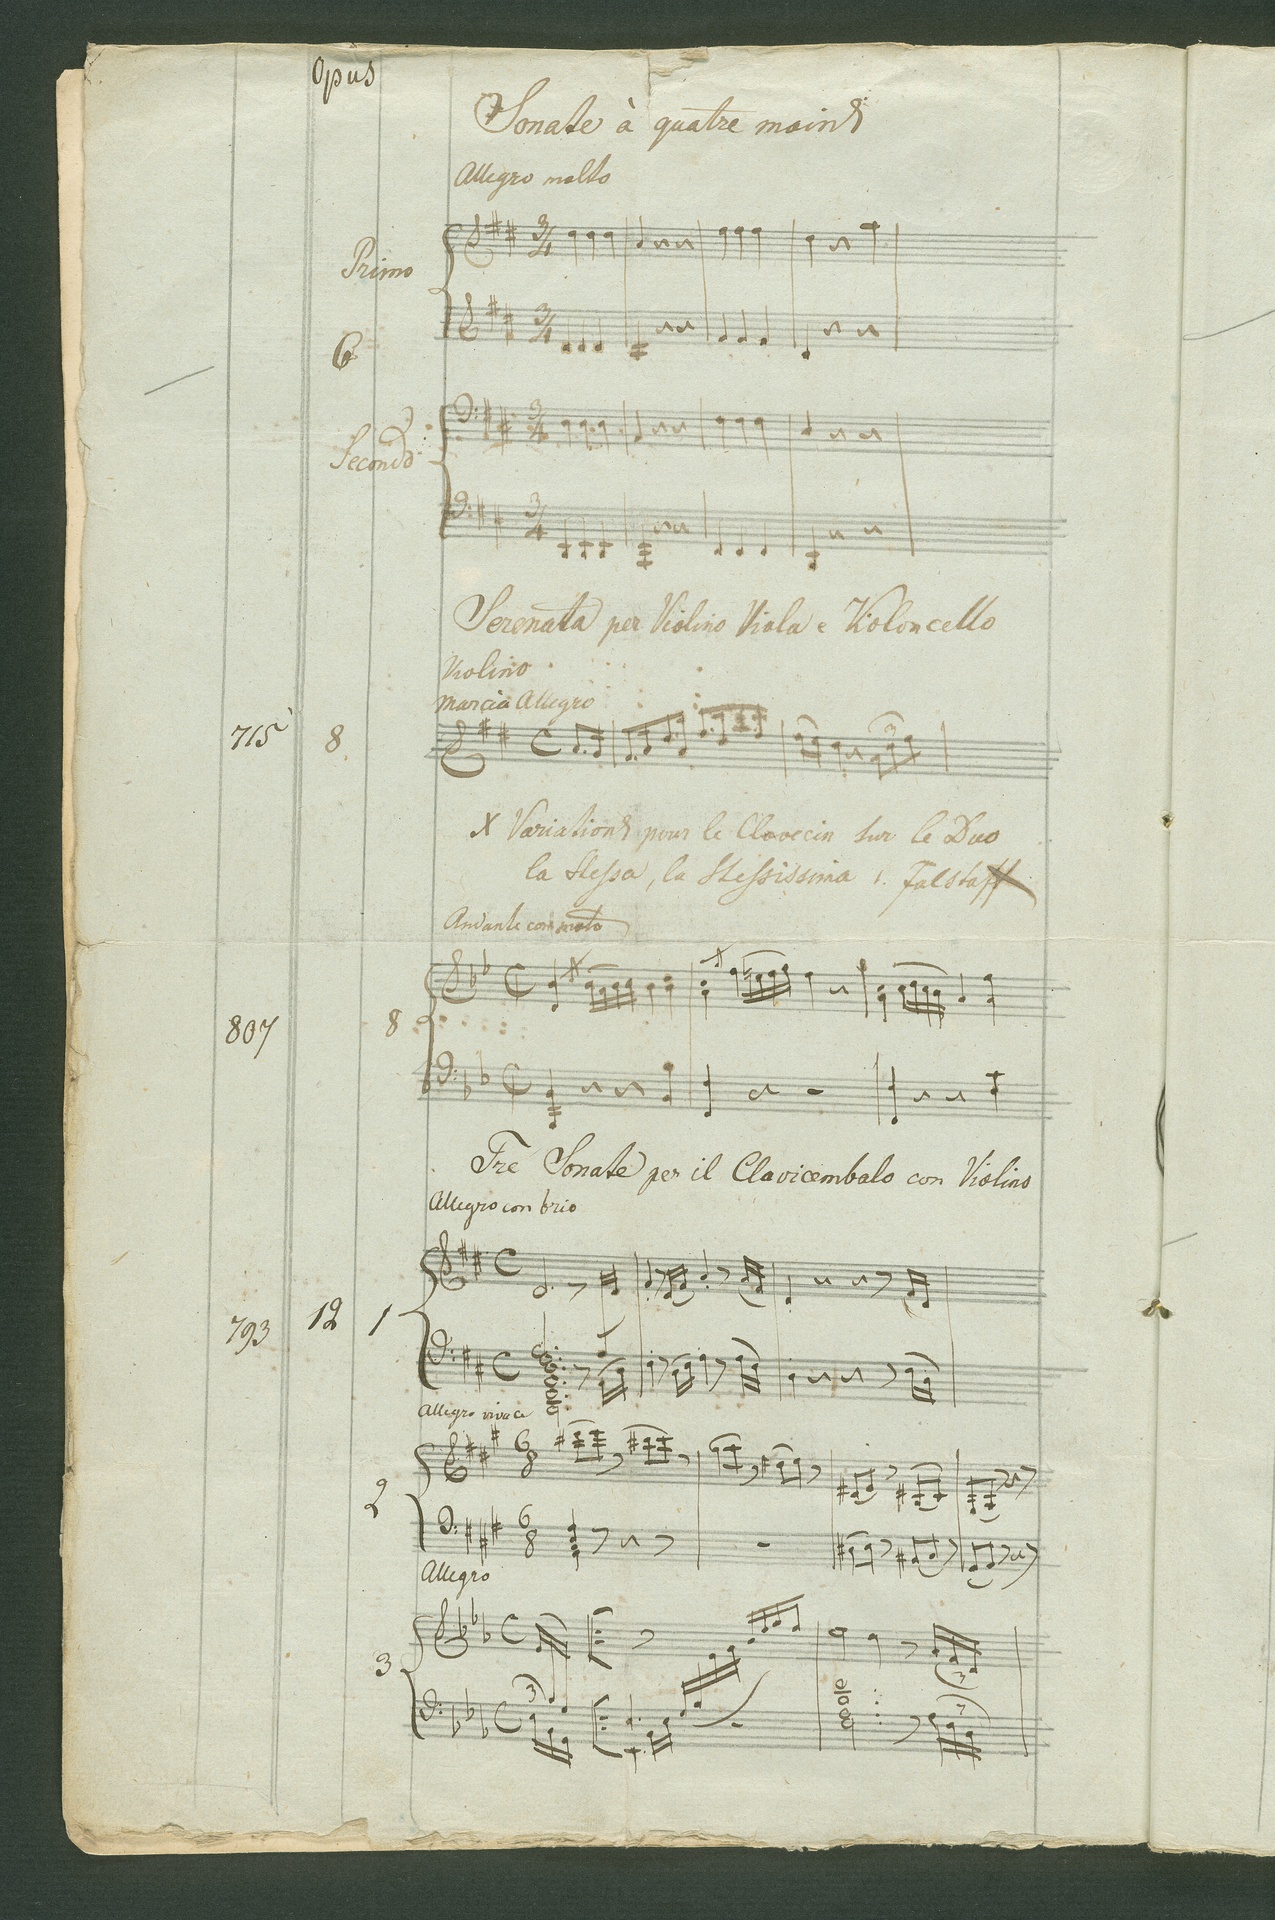 Opus
Sonate à quatre mains
Allegro molto
Primo
6
Secondo
Serenata per Violino Viola e Violoncello
Violino
Marcia Allegro
715 8
X Variations pour le Clavecin sur le Duo
la Stessa, la Stessissima
Falstaff
Andante con moto
807 8
Tre Sonate per il Clavicembalo con Violino
Allegro con brio
793 12 1
Allegro vivace
2
Allegro
3